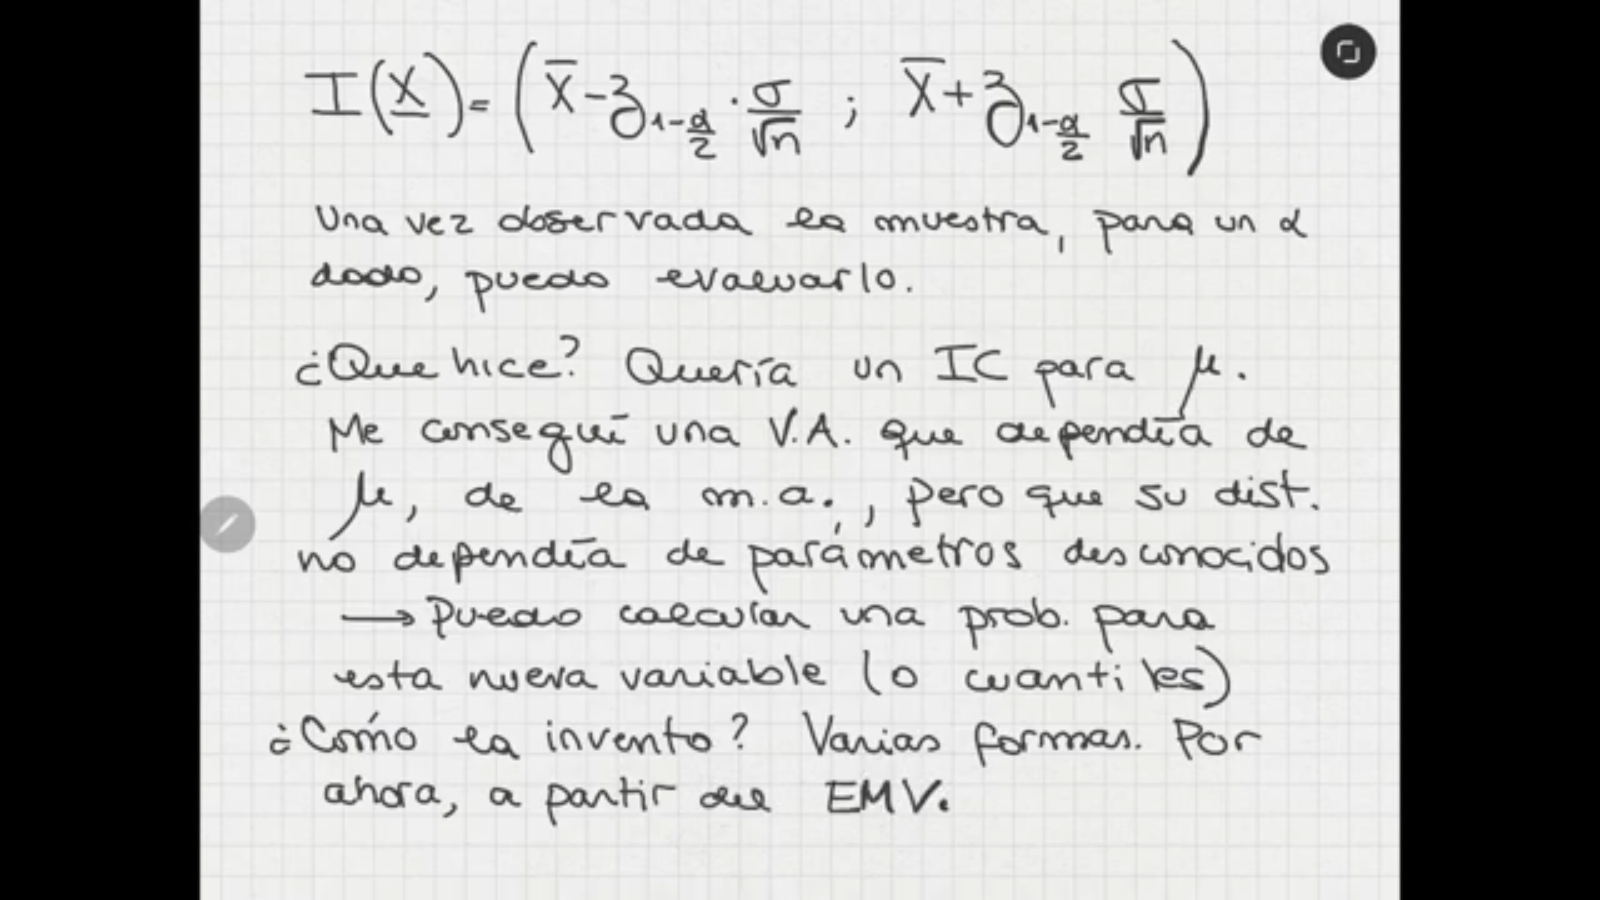 I(X) = ( X̄ - z_{1-α/2} · σ/√n ; X̄ + z_{1-α/2} σ/√n )
Una vez observada la muestra, para un α
dado, puedo evaluarlo.
¿Que hice? Quería un IC para μ.
Me conseguí una V.A. que dependía de
μ, de la m.a., pero que su dist.
no dependía de parámetros desconocidos
→ Puedo calcular una prob. para
esta nueva variable (o cuantiles)
¿Cómo la invento? Varias formas. Por
ahora, a partir del EMV.